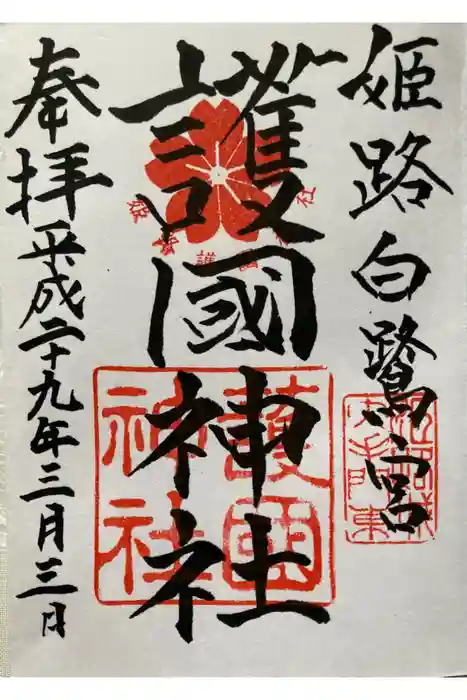 姫路白鷺宮
護國神社
奉拝
平成二十九年三月三日
護國
神社